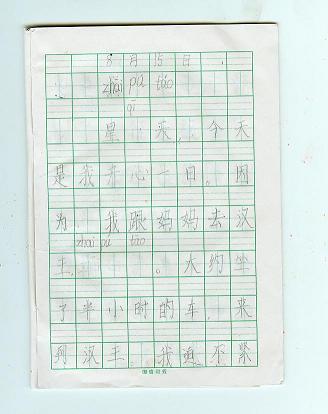 8月15日
zhāi pú táo
qī
星 来,今天
是我开心一日。因
为,我跟妈妈去汉
zhai pú táo
王, 。大约坐
了半小时的车,来
到汉王。我迫不紧